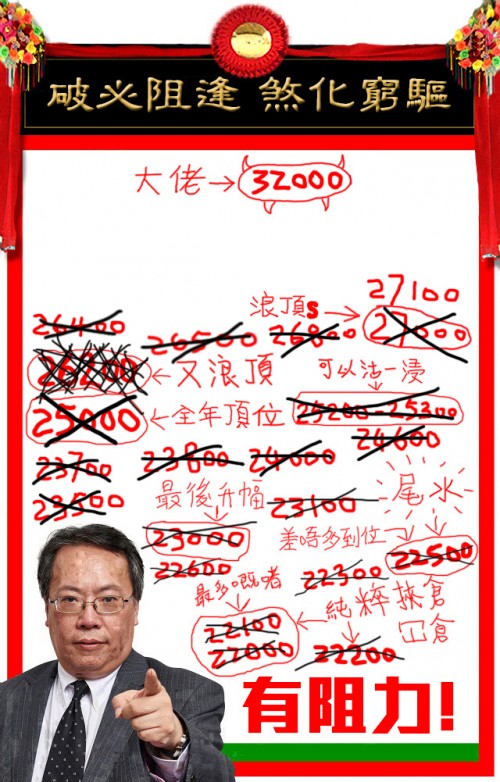 驅窮化煞 逢阻必破
大佬→32000
27100
浪頂s→
27000
26400
26500
26800
26200
←又浪頂
可以沽一浸
25000
←全年頂位
25200-25300
24600
23700
23800
24000
23500
最後升幅
23100
尾水
23000
差唔多到位
22500
22600
最多嘅啫
22300
純粹挾倉
冚倉
22100
22000
22200
有阻力!